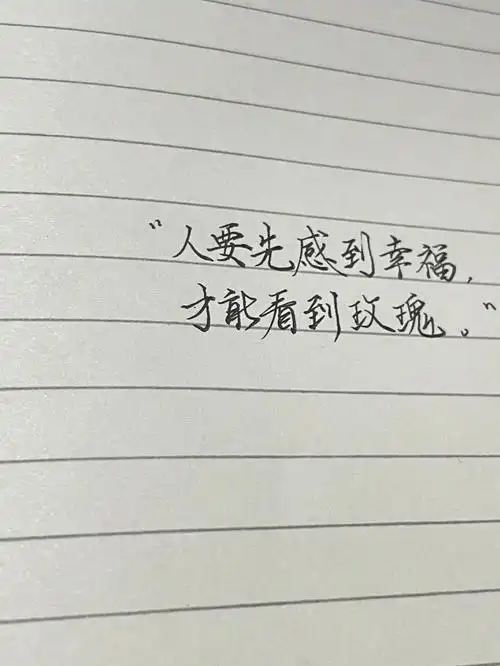 “人要先感到幸福,
才能看到玫瑰。”